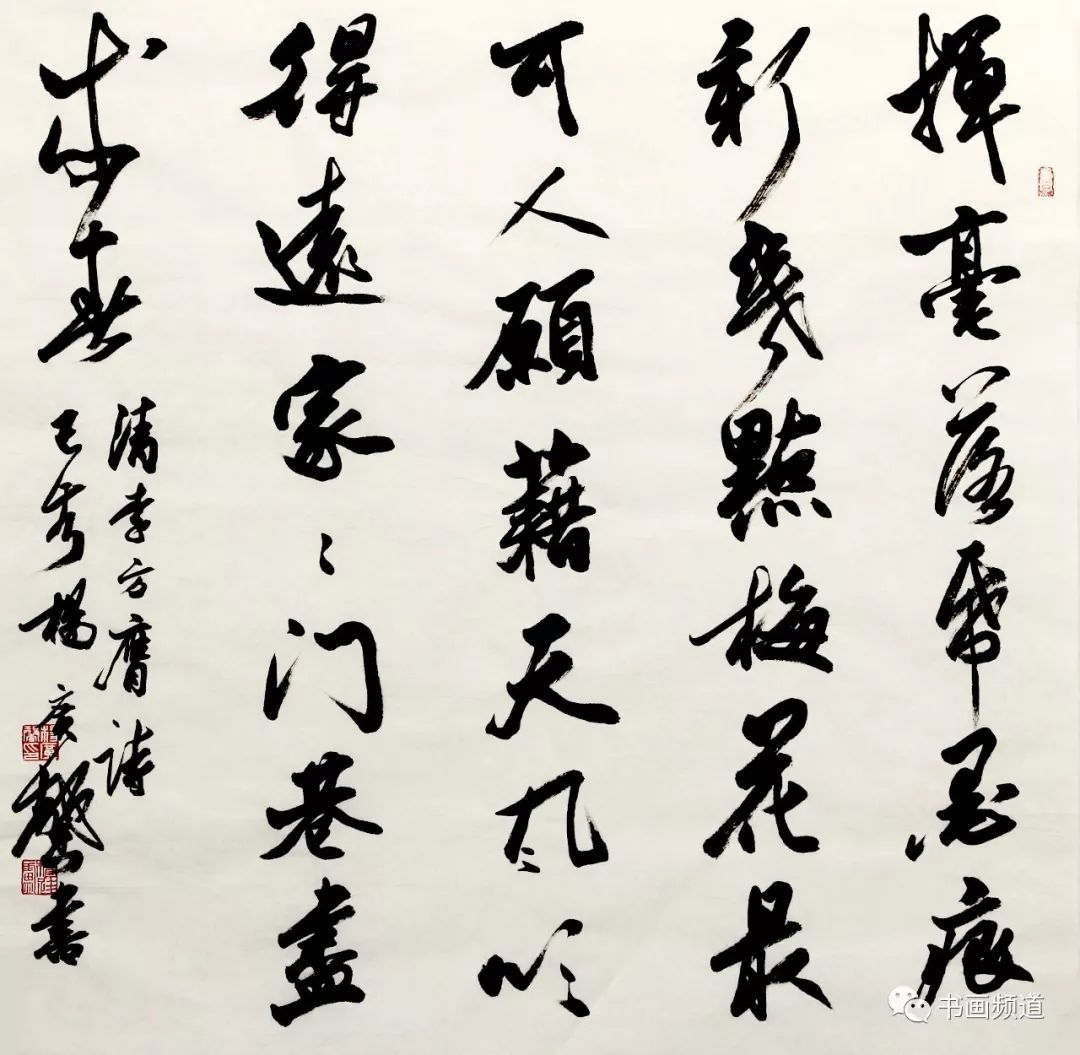 揮毫落帋墨痕
新幾點梅花最
可人願藉天风吹
得遠家〻门巷盡
成春
清李方膺詩
己亥楊廣馨書
书画频道